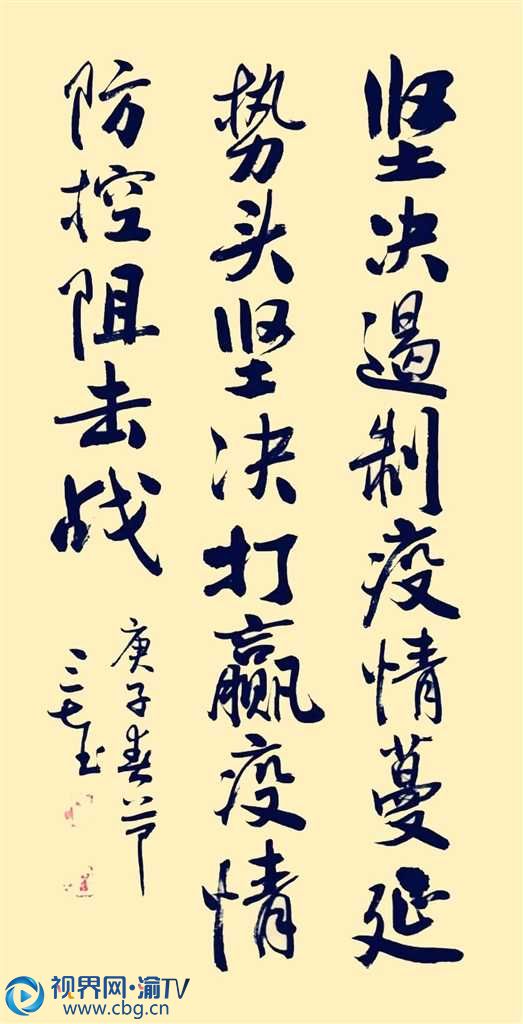 坚决遏制疫情蔓延
势头坚决打赢疫情
防控阻击战
庚子春节
三七玉
视界网·渝TV
www.cbg.cn